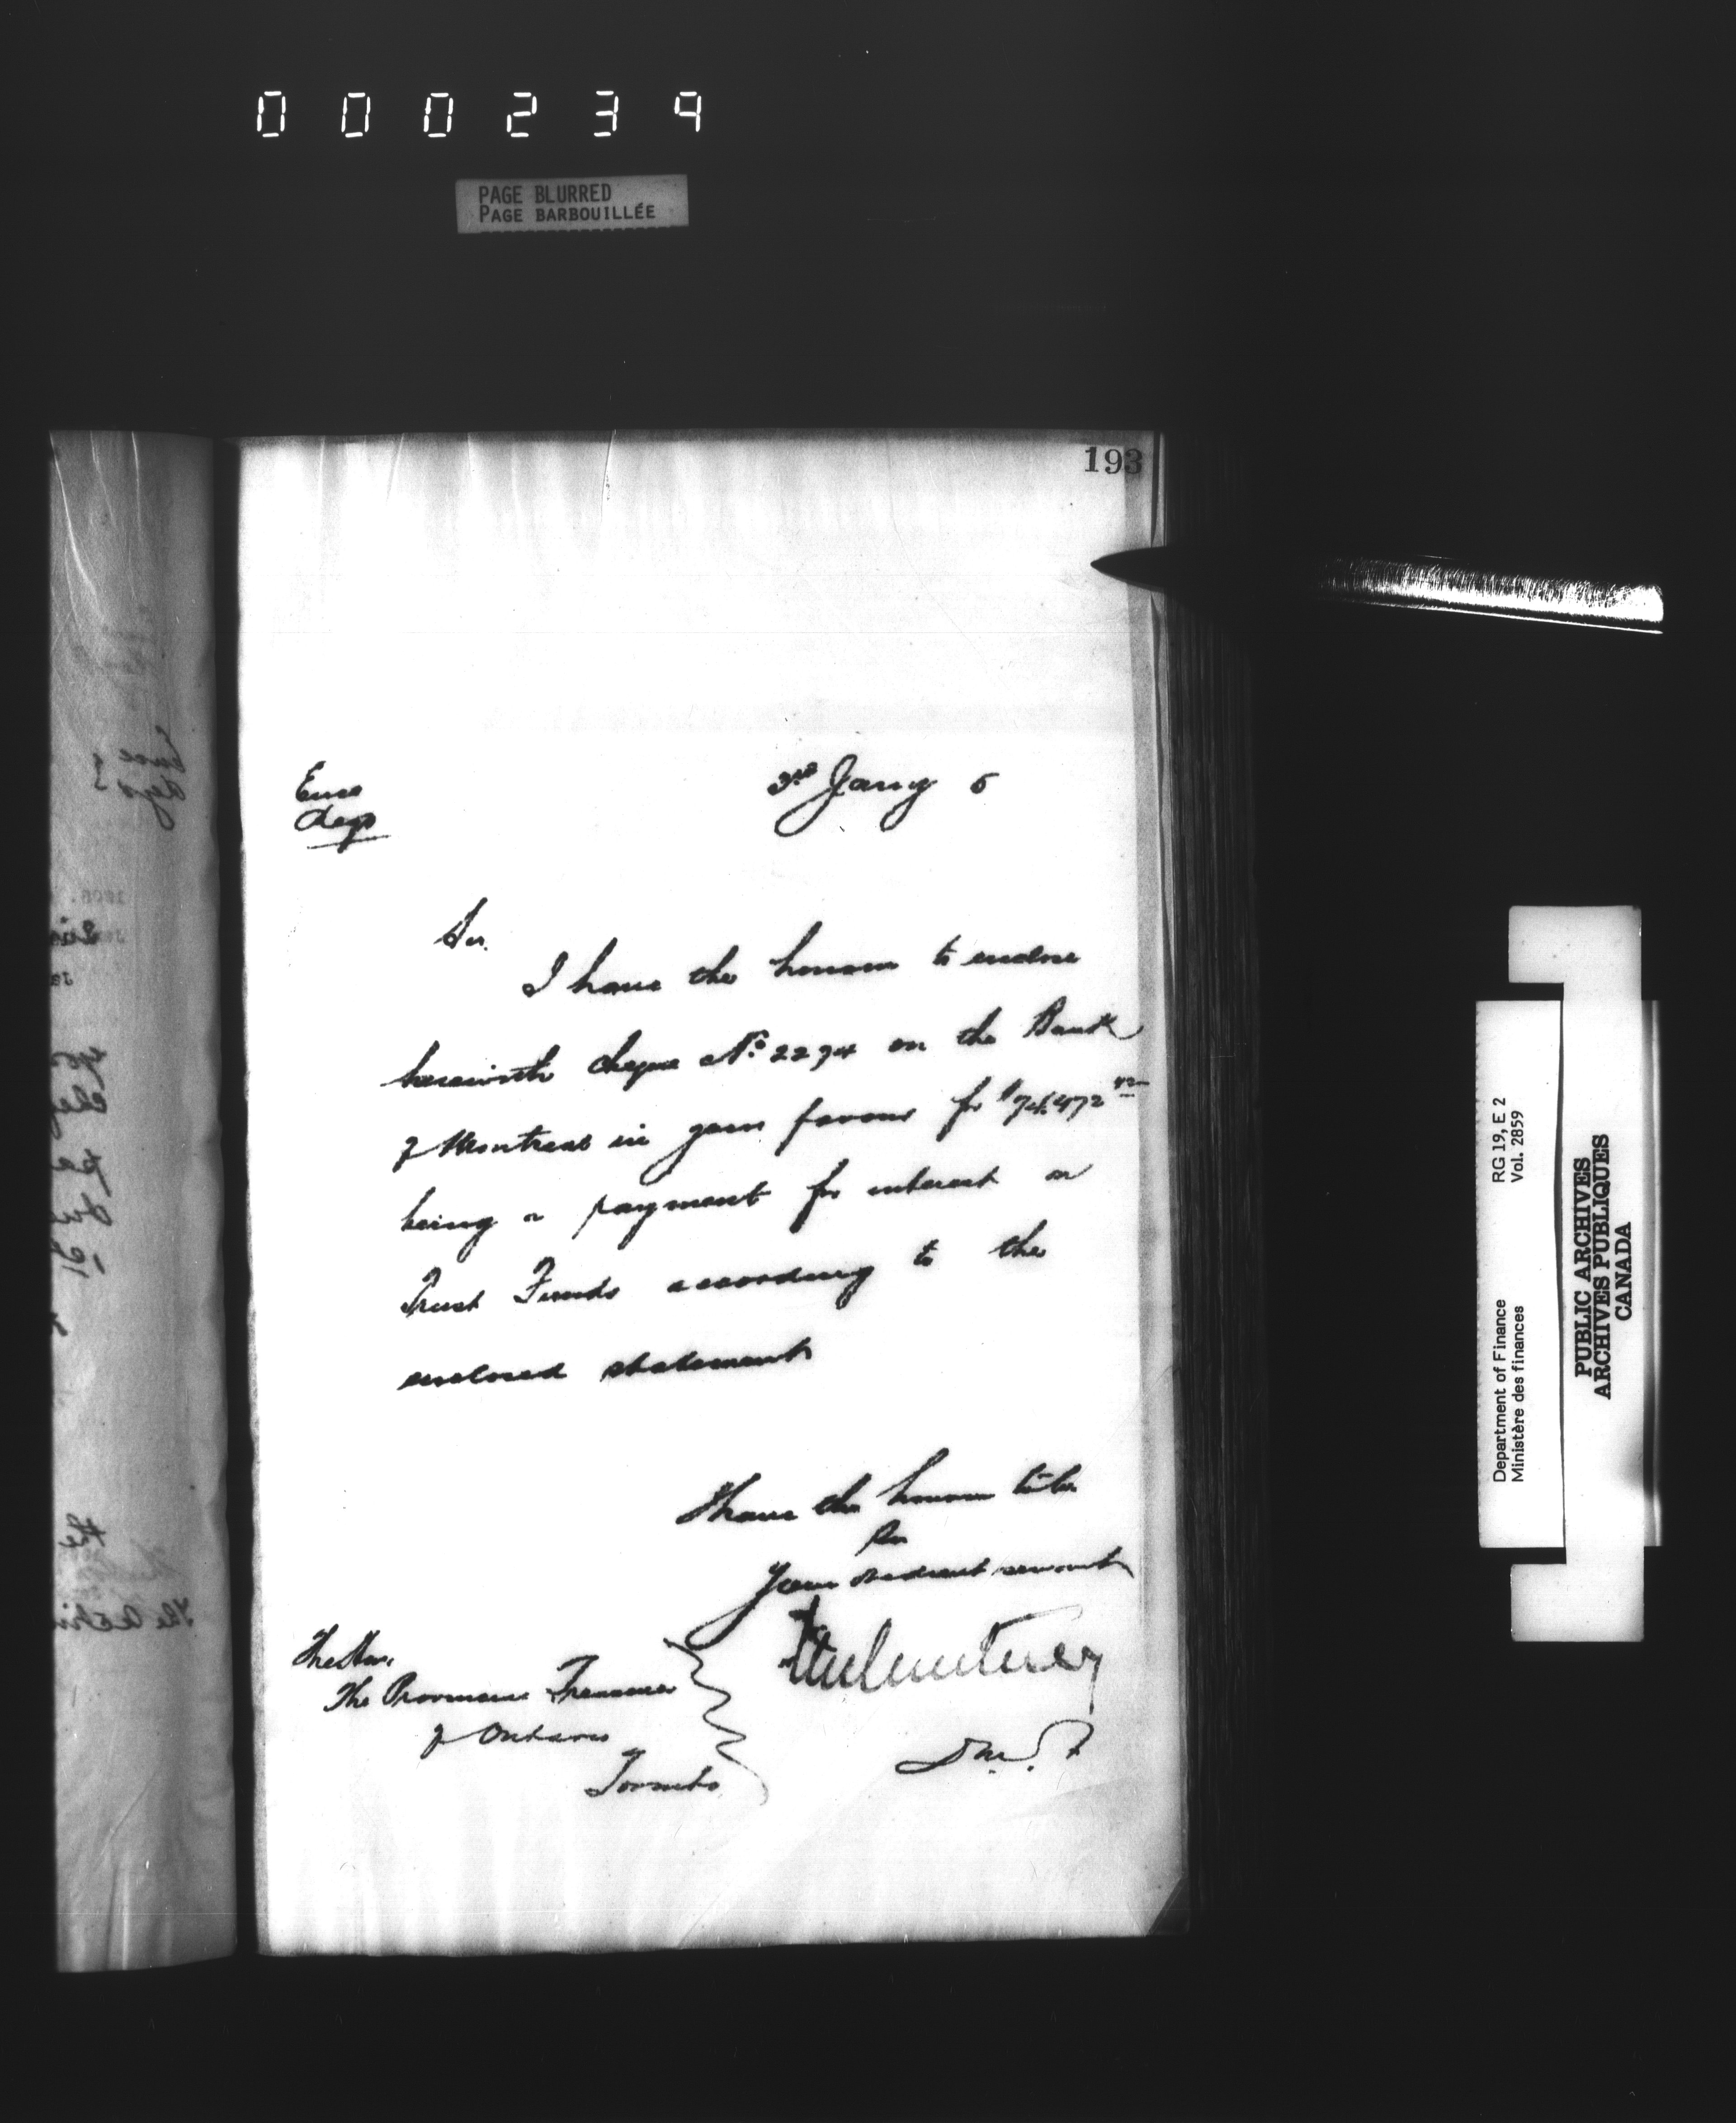 000234
PAGE BLURRED
PAGE BARBOUILLÉE
193
Encs
Regd
3rd Jany 6
Sir,
I have the honour to enclose
herewith cheque No. 2274 on the Bank
of Montreal in your favour for $74,472
being a payment for interest on
Trust Funds according to the
enclosed statement
I have the honour to be
Sir
Your obedient servant
The Hon.
The Provincial Treasurer
of Ontario
Toronto
D.M.F.
RG 19, E 2
Vol. 2859
Department of Finance
Ministère des finances
PUBLIC ARCHIVES
ARCHIVES PUBLIQUES
CANADA